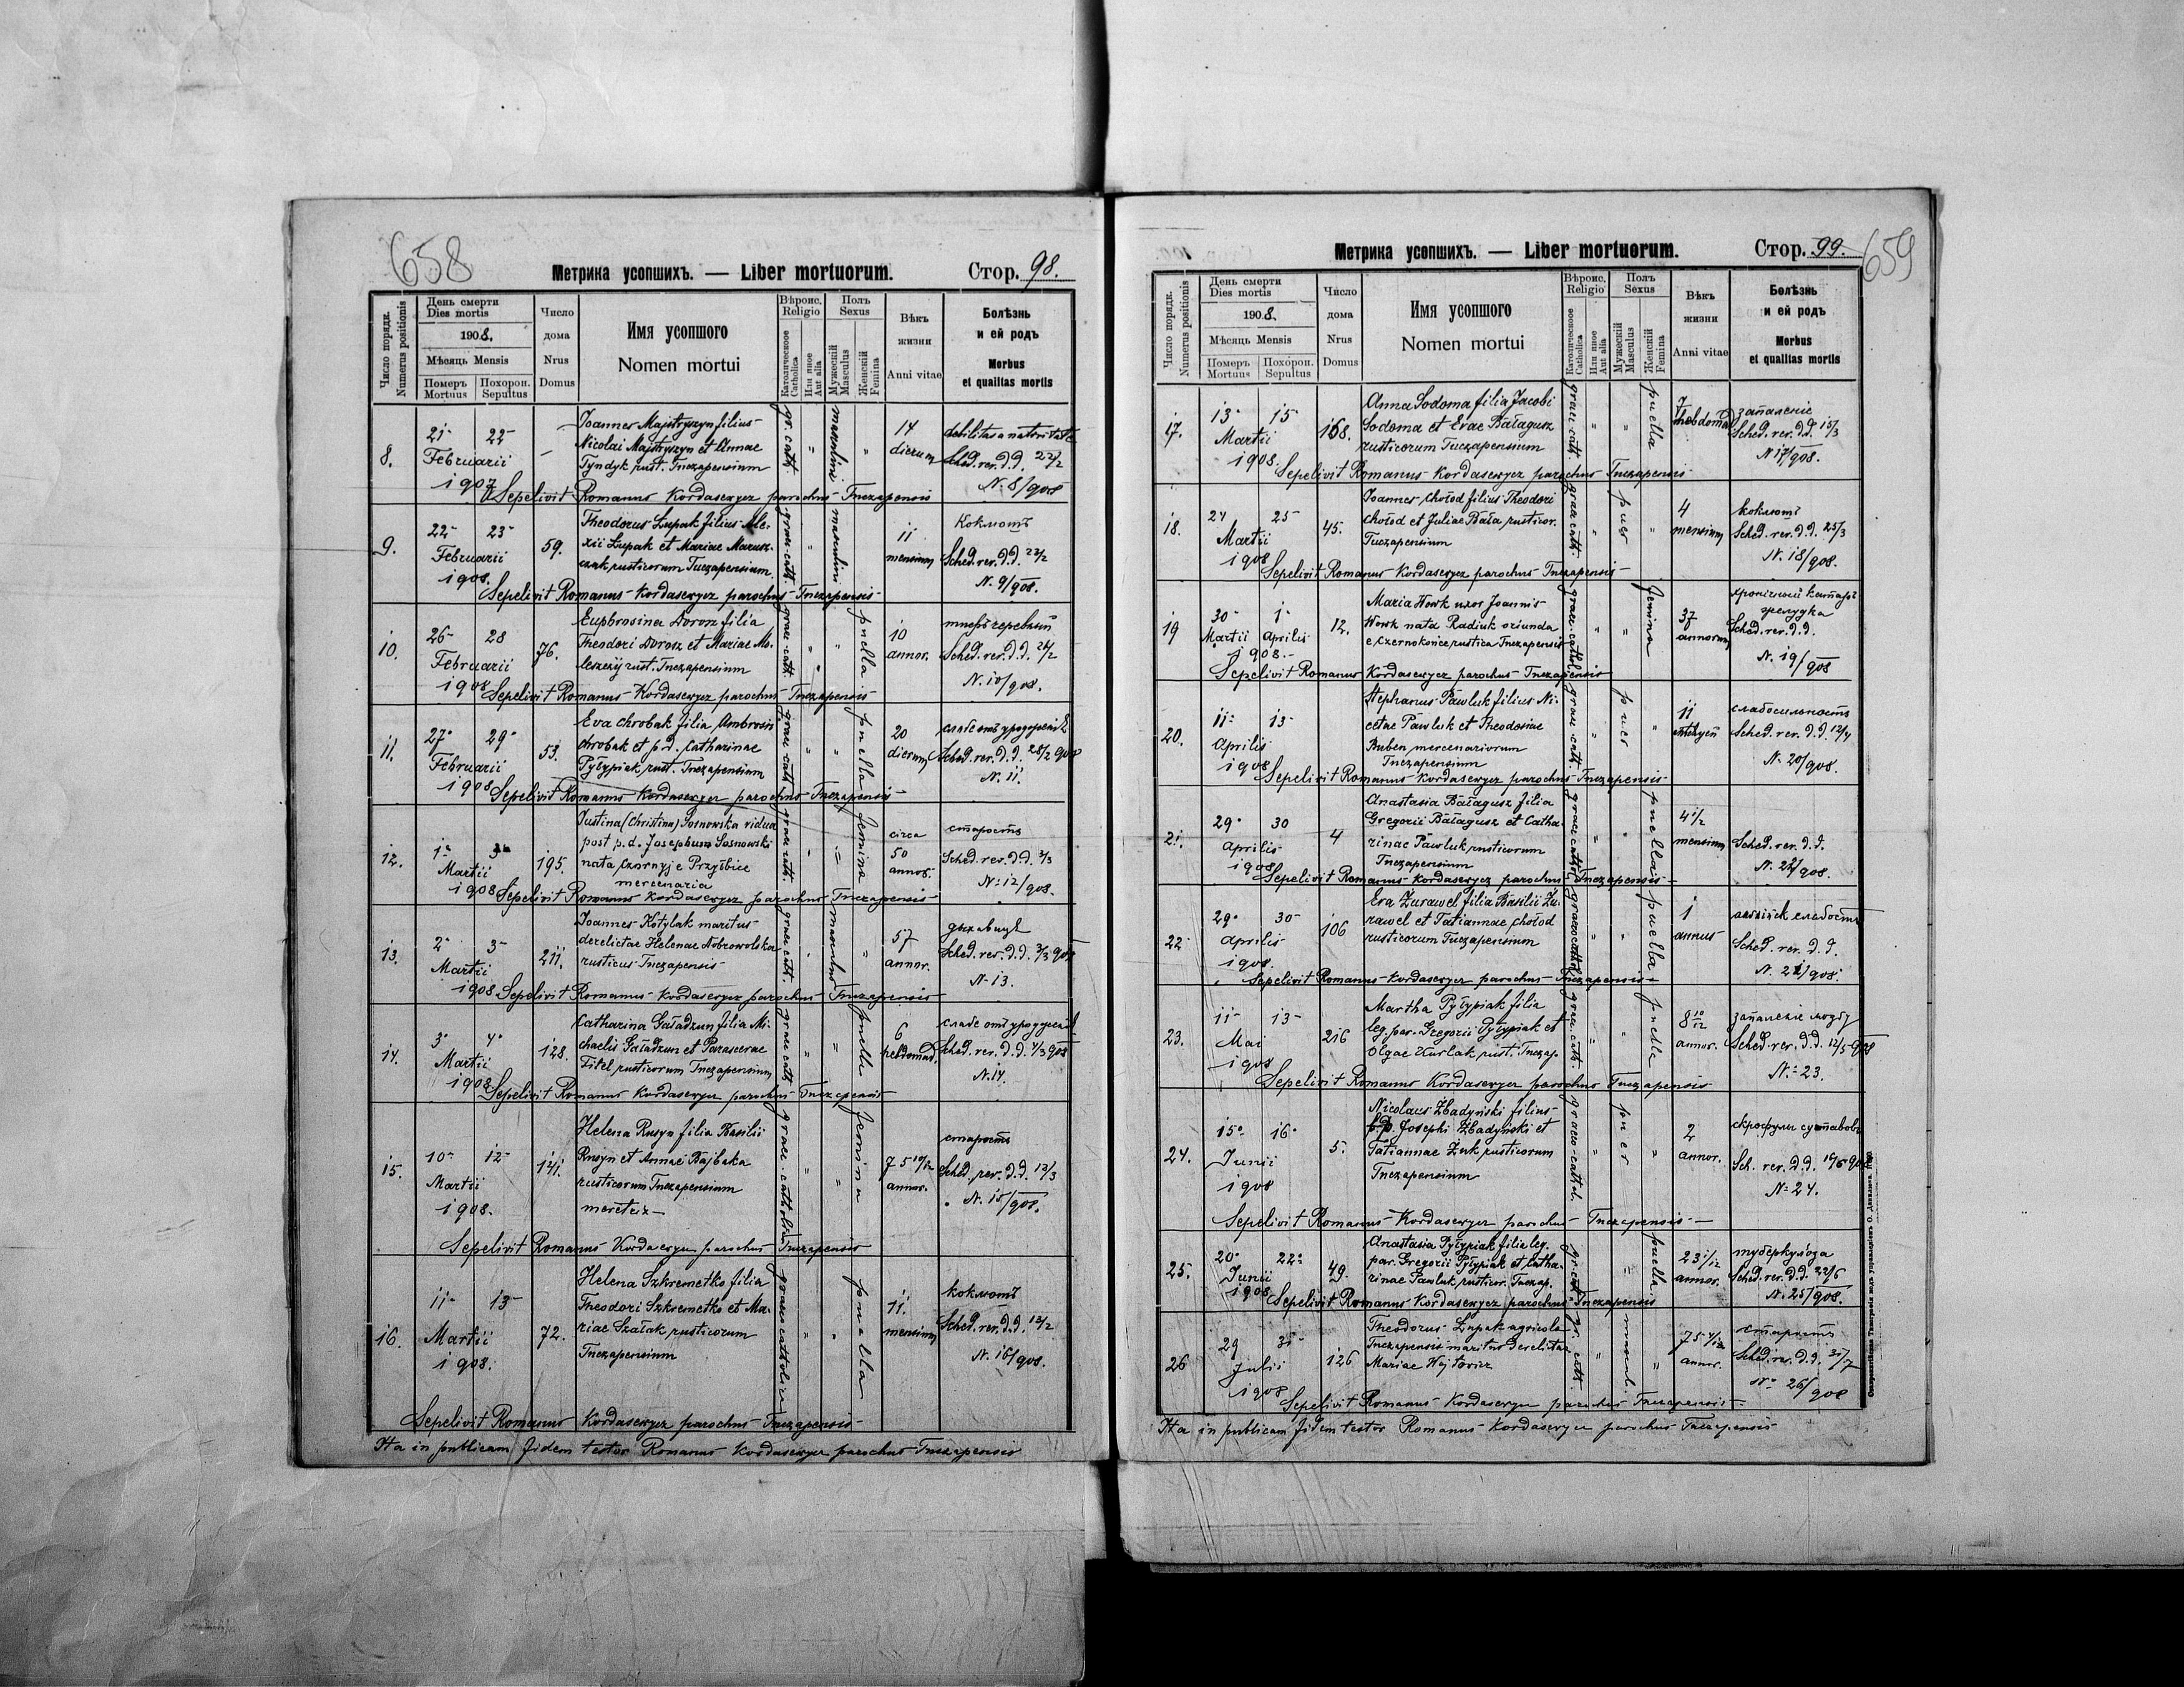 658
Метрика усопшихъ. — Liber mortuorum.
Стор. 98.
Число порядк.
Numerus positionis
День смерти
Dies mortis
1908.
Мѣсяць Mensis
Померъ
Mortuus
Похорон.
Sepultus
Число
дома
Nrus
Domus
Имя усопшого
Nomen mortui
Вѣроис.
Religio
Католическое
Catholica
Или иное
Aut alia
Полъ
Sexus
Мужескій
Masculus
Женскій
Femina
Вѣкъ
жизни
Anni vitae
Болѣзнь
и ей родъ
Morbus
et qualitas mortis
8.
21 22
Februarii
1907
Joannes Majstryszyn filius
Nicolai Majstryszyn et Annae
Tyndyk rust. Tuczapensium
gr. cath.
masculini
14
dierum
debilitas a nativitate
Sched. rev. d.d. 22/2
N. 8/908
Sepelivit Romanus Kordasewycz parochus Tuczapensis
9.
22 23
Februarii
1908.
59.
Theodorus Łupak filius Ale-
xii Łupak et Mariae Marusz-
czak rusticorum Tuczapensium
graec. cath.
masculini
11
mensium
Коклюшъ
Sched. rev. d.d. 23/2
N. 9/908.
Sepelivit Romanus Kordasewycz parochus Tuczapensis
10.
26 28
Februarii
1908
76.
Euphrosina Dorosz filia
Theodori Dorosz et Mariae Mo-
leszczij rust. Tuczapensium
graec. cath.
puella
10
annor.
Sched. rev. d.d. 26/2
N. 10/908.
Sepelivit Romanus Kordasewycz parochus Tuczapensis
11.
27 29
Februarii
1908
53.
Eva Chrobak filia Ambrosii
Chrobak et p.d. Catharinae
Pyłypiak rust. Tuczapensium
graec. cath.
puella
20
dierum
Sched. rev. d.d. 28/2 908
N. 11.
Sepelivit Romanus Kordasewycz parochus Tuczapensis
12.
1 3
Martii
1908
195.
Justina (Christina) Sosnowska vidua
post p.d. Josephum Sosnowski
nata Czornyj e Przyłbice
mercenaria
graec. cath.
femina
circa
50
annor.
старость
Sched. rev. d.d. 3/3
N. 12/908.
Sepelivit Romanus Kordasewycz parochus Tuczapensis
13.
2 3
Martii
1908
211.
Joannes Kotylak maritus
derelictae Helenae Dobrowolska
rusticus Tuczapensis
graec. cath.
masculus
57
annor.
дыхавиця
Sched. rev. d.d. 3/3 908
N. 13.
Sepelivit Romanus Kordasewycz parochus Tuczapensis
14.
3 4
Martii
1908
128.
Catharina Gaładzun filia Mi-
chaelis Gaładzun et Parascevae
Titel rusticorum Tuczapensium
graec. cath.
puella
6
hebdomad.
Sched. rev. d.d. 4/3 908
N. 14.
Sepelivit Romanus Kordasewycz parochus Tuczapensis
15.
10 12
Martii
1908.
121.
Helena Rusyn filia Basilii
Rusyn et Annae Bajbaka
rusticorum Tuczapensium
meretrix
graec. catholica
femina
75 10/12
annor.
старость
Sched. rev. d.d. 12/3
N. 15/908.
Sepelivit Romanus Kordasewycz parochus Tuczapensis
16.
11 13
Martii
1908.
72.
Helena Szkremetko filia
Theodori Szkremetko et Ma-
riae Szałak rusticorum
Tuczapensium
graeco cattolica
puella
11.
mensium
коклюшъ
Sched. rev. d.d. 13/2
N. 16/908.
Sepelivit Romanus Kordasewycz parochus Tuczapensis
Ita in publicam fidem testor Romanus Kordasewycz parochus Tuczapensis
659
Метрика усопшихъ. — Liber mortuorum.
Стор. 99.
Число порядк.
Numerus positionis
День смерти
Dies mortis
1908.
Мѣсяць Mensis
Померъ
Mortuus
Похорон.
Sepultus
Число
дома
Nrus
Domus
Имя усопшого
Nomen mortui
Вѣроис.
Religio
Католическое
Catholica
Или иное
Aut alia
Полъ
Sexus
Мужескій
Masculus
Женскій
Femina
Вѣкъ
жизни
Anni vitae
Болѣзнь
и ей родъ
Morbus
et qualitas mortis
17.
13 15
Martii
1908.
168.
Anna Sodoma filia Jacobi
Sodoma et Evae Bałagusz
rusticorum Tuczapensium
graec. cath.
puella
7
hebdomad
запаленіе
Sched. rev. d.d. 15/3
N. 17/908.
Sepelivit Romanus Kordasewycz parochus Tuczapensis
18.
24 25
Martii
1908
45.
Joannes Chołod filius Theodori
Chołod et Juliae Bała rusticor.
Tuczapensium
graec. cath.
puer
4
mensium
коклюшъ
Sched. rev. d.d. 25/3
N. 18/908.
Sepelivit Romanus Kordasewycz parochus Tuczapensis
19
30 1
Martii Aprilis
1908.
12.
Maria Wowk uxor Joannis
Wowk nata Radiuk oriunda
e Czernokońce rustica Tuczapensis
graec. cathol.
femina
37
annorum
хроничный катаръ
желудка
Sched. rev. d.d.
N. 19/908
Sepelivit Romanus Kordasewycz parochus Tuczapensis
20.
11 13
Aprilis
1908
Stephanus Pawluk filius Ni-
cetae Pawluk et Theodosiae
Buben mercenariorum
Tuczapensium
graec. cath.
puer
11
слабосильность
Sched. rev. d.d. 12/4
N. 20/908.
Sepelivit Romanus Kordasewycz parochus Tuczapensis
21.
29 30
Aprilis
1908
4
Anastasia Bałagusz filia
Gregorii Bałagusz et Catha-
rinae Pawluk rusticorum
Tuczapensium
graec. cathol.
puella
4 1/2
mensium
Sched. rev. d.d.
N. 22/908.
Sepelivit Romanus Kordasewycz parochus Tuczapensis
22
29 30
Aprilis
1908.
106
Eva Żurawel filia Basilii Żu-
rawel et Tatiannae Chołod
rusticorum Tuczapensium
graeco cattol.
puella
1
annus
Sched. rev. d.d.
N. 21/908.
Sepelivit Romanus Kordasewycz parochus Tuczapensis
23.
11 13
Mai
1908
216
Martha Pyłypiak filia
leg. par. Gregorii Pyłypiak et
Olgae Kurlak rust. Tuczap.
graec. cath.
puella
8 10/12
annor.
запаленіе мозгу
Sched. rev. d.d. 12/5 908
N. 23.
Sepelivit Romanus Kordasewycz parochus Tuczapensis
24.
15 16
Junii
1908
5.
Nicolaus Zbadyński filius
p.d. Josephi Zbadyński et
Tatiannae Żuk rusticorum
Tuczapensium
graeco-cattol.
puer
2
annor.
скрофулы суставовъ
Sch. rev. d.d. 16/6 908
N. 24.
Sepelivit Romanus Kordasewycz parochus Tuczapensis
25.
20 22
Junii
1908
49.
Anastasia Pyłypiak filia leg.
par. Gregorii Pyłypiak et Catha-
rinae Pawluk rusticor. Tuczap.
gr. cath.
puella
23 1/12
annor.
туберкулоза
Sched. rev. d.d. 22/6
N. 25/908.
Sepelivit Romanus Kordasewycz parochus Tuczapensis
26
29 31
Julii
1908
126
Theodorus Łupak agricola
Tuczapensis maritus derelictae
Mariae Wojtowicz
gr. cath.
mascul.
75 4/12
annor.
старость
Sched. rev. d.d. 31/7
N. 26/908
Sepelivit Romanus Kordasewycz parochus Tuczapensis
Ita in publicam fidem testor Romanus Kordasewycz parochus Tuczapensis